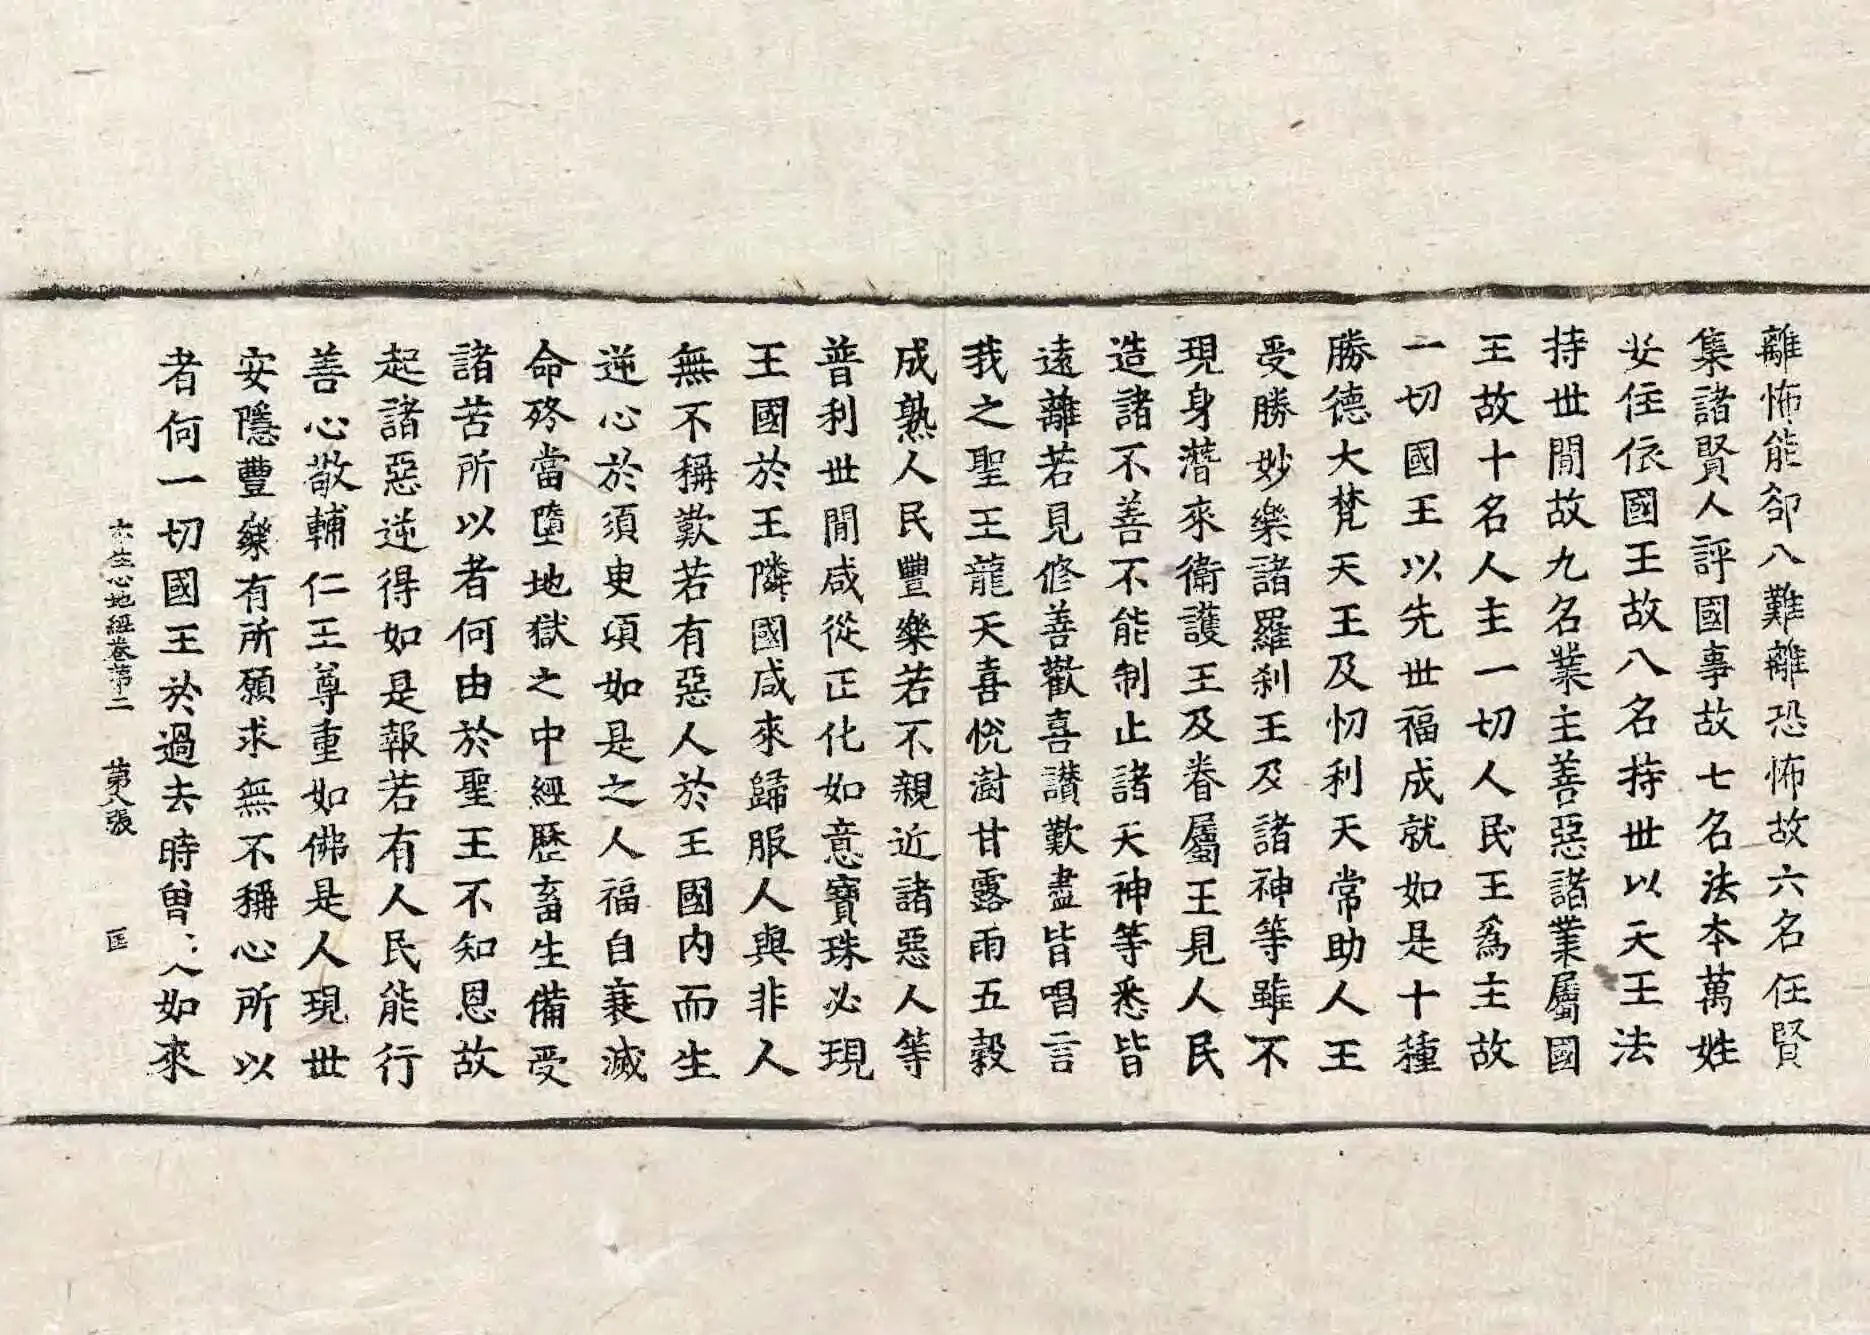 離怖能郤八難離恐怖故六名任賢
集諸賢人評國事故七名法本萬姓
安住依國王故八名持世以天王法
持世間故九名業主善惡諸業屬國
王故十名人主一切人民王為主故
一切國王以先世福成就如是十種
勝德大梵天王及忉利天常助人王
受勝妙樂諸羅刹王及諸神等雖不
現身潛來衛護王及眷屬王見人民
造諸不善不能制止諸天神等悉皆
遠離若見修善歡喜讃歎盡皆唱言
我之聖王龍天喜悅澍甘露雨五穀
成熟人民豐樂若不親近諸惡人等
普利世間咸從正化如意寶珠必現
王國於王隣國咸來歸服人與非人
無不稱歎若有惡人於王國內而生
逆心於須臾頃如是之人福自衰滅
命終當墮地獄之中經歷畜生備受
諸苦所以者何由於聖王不知恩故
起諸惡逆得如是報若有人民能行
善心敬輔仁王尊重如佛是人現世
安隱豐樂有所願求無不稱心所以
者何一切國王於過去時曾入如來
本生心地經卷第二 第八張 匡